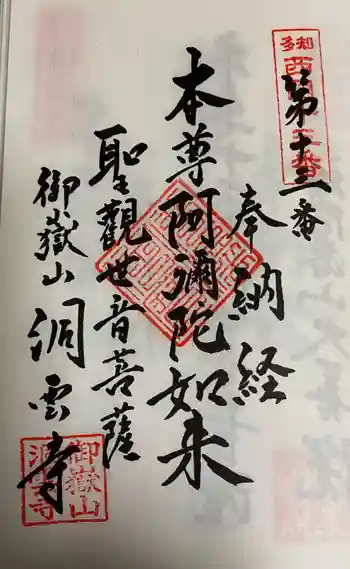 知多
西国十三番
第十三番
奉納経
本尊阿彌陀如来
聖觀世音菩薩
御嶽山
洞雲寺
御嶽山
洞雲寺